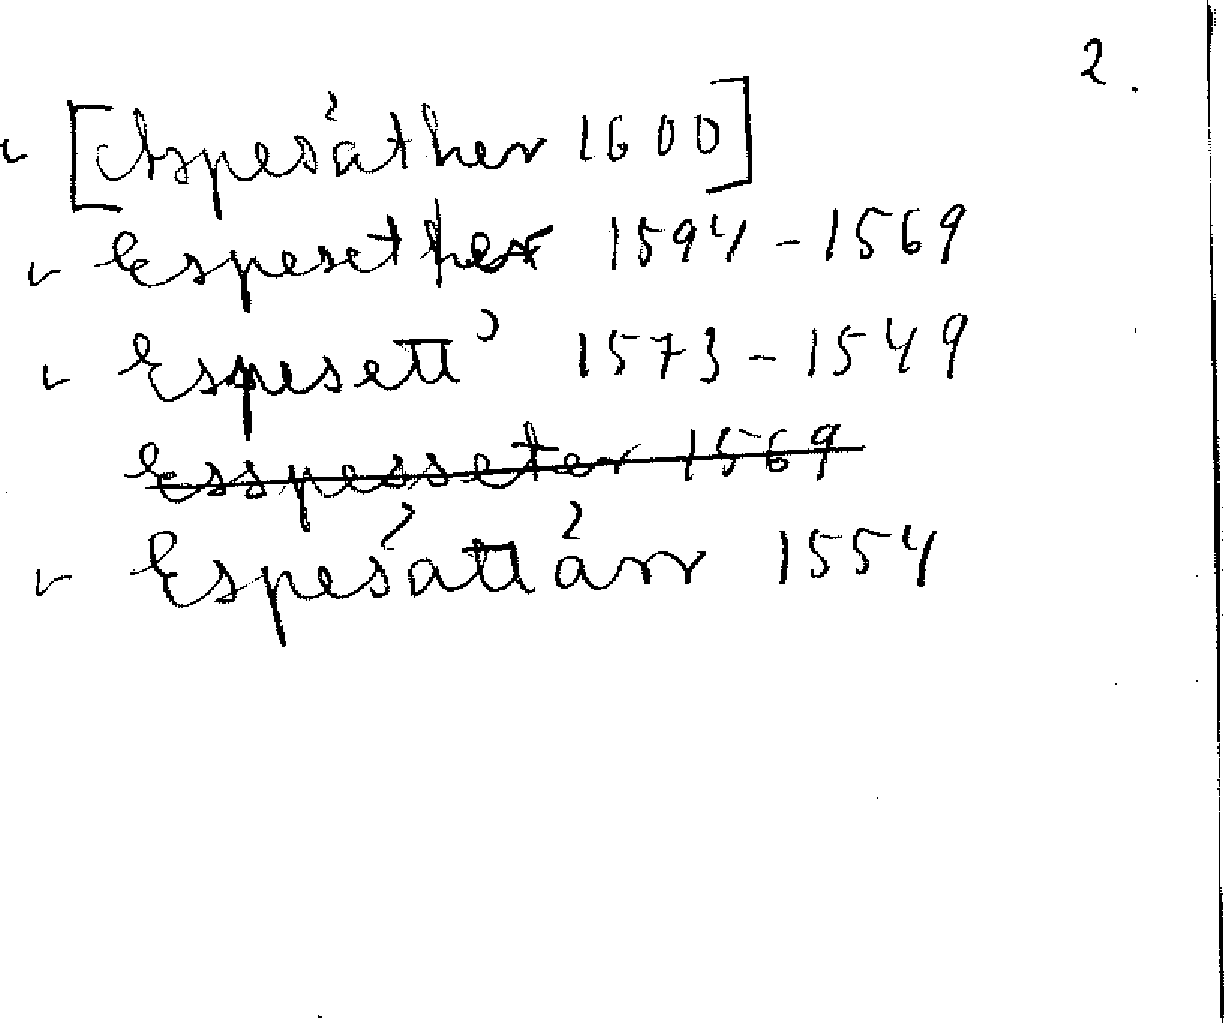 2.
[Aspesåther 1600]
Espesether 1594-1569
Espesett' 1573-1549
Esspesseter 1569
Espesåttårr 1554